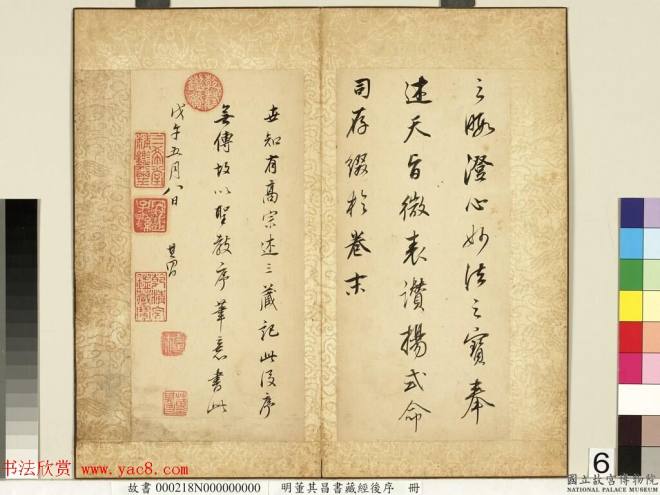 之暇澄心妙法之寶奉
述天旨微表讚揚式命
司存綴於卷末
世知有高宗述三藏記此後序
無傳故以聖教序筆意書此
戊午五月八日 其昌
6
書法欣賞 www.yac8.com
故書 000218N000000000 明董其昌書藏經後序 冊
國立故宮博物院
NATIONAL PALACE MUSEUM